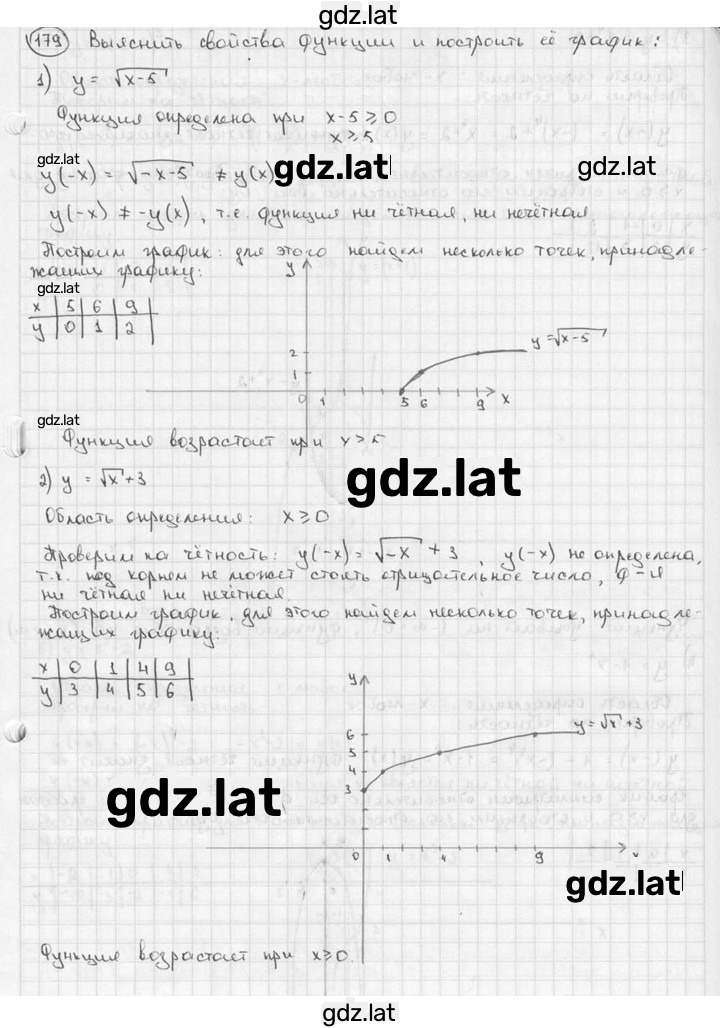 gdz.lat
179 Выяснить свойства функции и построить её график:
1) y = √x-5
Функция определена при x-5 ≥ 0
x ≥ 5
gdz.lat
gdz.lat
gdz.lat
y(-x) = √-x-5 ≠ y(x)
y(-x) ≠ -y(x), т.е. функция ни чётная, ни нечётная
Построим график: для этого найдем несколько точек, принадле-
жащих графику:
gdz.lat
x 5 6 9
y 0 1 2
y
y=√x-5
2
1
0 1 5 6 9 x
gdz.lat
Функция возрастает при x ≥ 5
gdz.lat
2) y = √x+3
Область определения: x ≥ 0
Проверим на чётность: y(-x) = √-x + 3, y(-x) не определена,
т.к. под корнем не может стоять отрицательное число, ф-я
ни чётная ни нечётная.
Построим график, для этого найдем несколько точек, принадле-
жащих графику:
x 0 1 4 9
y 3 4 5 6
y
y=√x+3
6
5
4
3
gdz.lat
0 1 4 9 x
gdz.lat
Функция возрастает при x ≥ 0.
gdz.lat